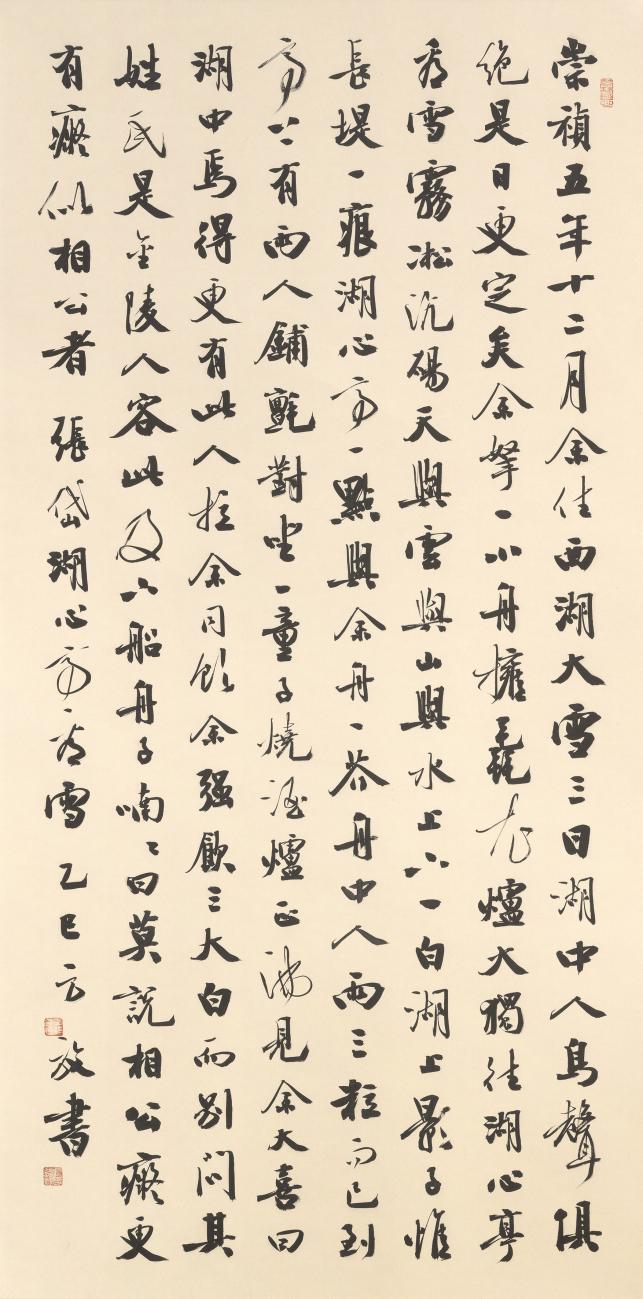 崇禎五年十二月余住西湖大雪三日湖中人鳥聲俱
絕是日更定矣余拏一小舟擁毳衣爐火獨往湖心亭
看雪霧凇沆碭天與雲與山與水上下一白湖上影子惟
長堤一痕湖心亭一點與余舟一芥舟中人兩三粒而已到
亭上有兩人鋪氈對坐一童子燒酒爐正沸見余大喜曰
湖中焉得更有此人拉余同飲余强飲三大白而別問其
姓氏是金陵人客此及下船舟子喃〻曰莫說相公癡更
有癡似相公者 張岱湖心亭看雪 乙巳方放書